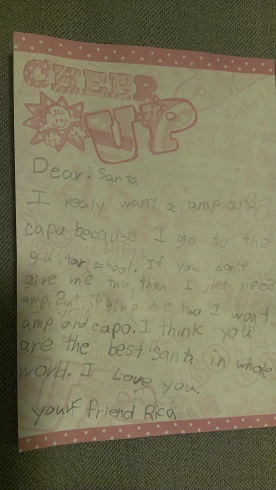 CHEER
UP
Dear: Santa
I realy want a amp and
capo because I go to the
guitar school. If you don't
give me two then I just need
amp. But if give me two I want
amp and capo. I think you
are the best santa in whole
world. I Love you.
your friend Rica